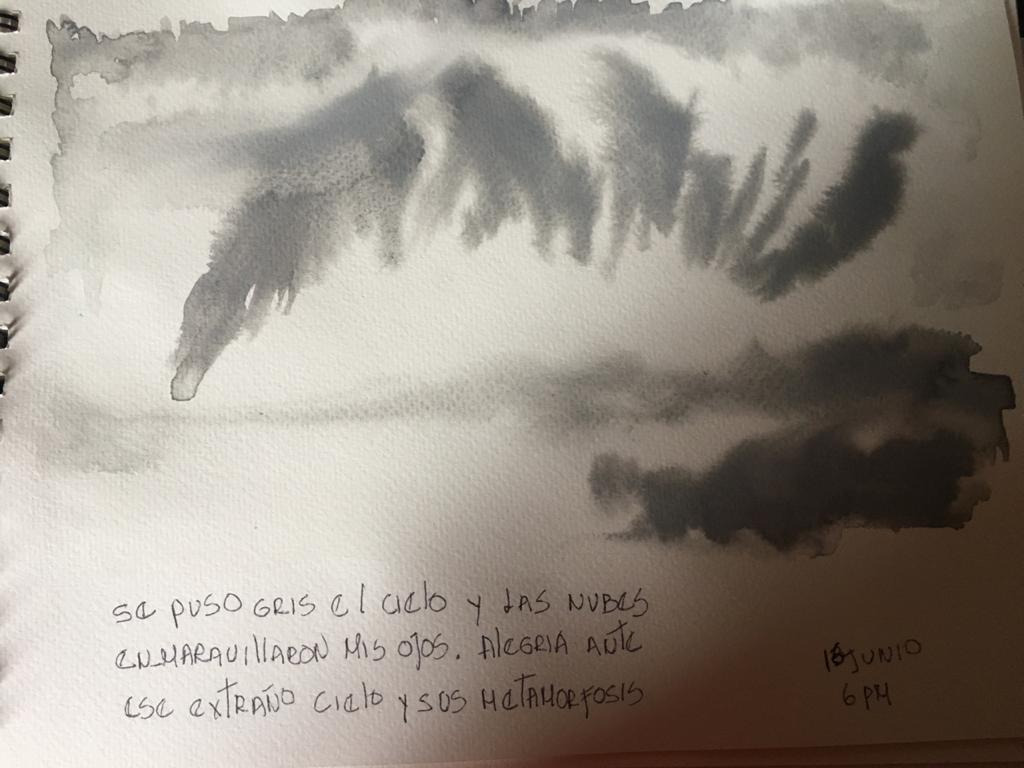 SE PUSO GRIS EL CIELO Y LAS NUBES
ENMARAQUILLARON MIS OJOS. ALEGRIA ANTE
ESE EXTRAÑO CIELO Y SUS METAMORFOSIS
JUNIO
6 PM